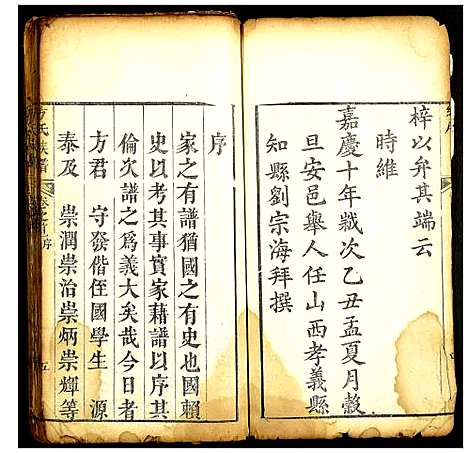 梓以弁其端云
時維
嘉慶十年歲次乙丑孟夏月穀
旦安邑舉人任山西孝義縣
知縣劉宗海拜撰
序
家之有譜猶國之有史也國賴
史以考其事實家藉譜以序其
倫次譜之為義大矣哉今日者
方君 守發偕侄國學生 源
泰及 崇潤崇治崇炳崇輝等
方氏族譜 卷之首 序 五